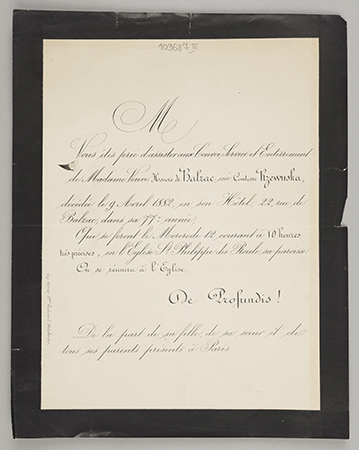 10968
M
Vous êtes prié d'assister aux Convoi, Service et Enterrement
de Madame Veuve Honoré de Balzac, née Comtesse Rzewuska,
décédée le 9 Avril 1882, en son Hôtel, 22, rue de
Balzac, dans sa 77e année;
Qui se feront le Mercredi 12 courant à 10 heures
très précises, en l'Eglise St Philippe du Roule, sa paroisse.
On se réunira à l'Eglise.
De Profundis!
De la part de sa fille, de sa sœur et de
tous ses parents présents à Paris